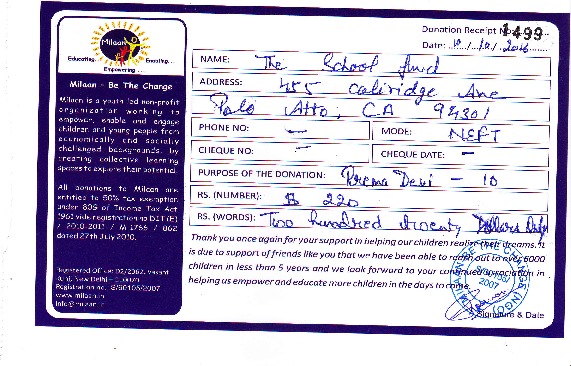 Milaan
Educating.. Enabling...
Empowering...
Milaan - Be The Change
Milaan is a youth led non-profit
organization working to
empower, enable and engage
children and young people from
economically and socially
challenged backgrounds, by
creating collective learning
spaces to explore their potential.
All donations to Milaan are
entitled to 50% tax exemption
under 80G of Income Tax Act
1961 vide registration no DIT (E)
/ 2010-2011 /
dated 27th July 2010.
Registered Office: Vasant
Kunj, New Delhi -
Registration no.
www.milaan.in
info@milaan.in
Donation Receipt No. 1499
Date: 2016
NAME: The School fund
ADDRESS: 455 Ave
Palo Alto, CA 94301
PHONE NO: —
MODE: NEFT
CHEQUE NO: —
CHEQUE DATE: —
PURPOSE OF THE DONATION: Prema Devi - 10
RS. (NUMBER): $ 220
RS. (WORDS): Two hundred twenty Dollars Only
Thank you once again for your support in helping our children realize their dreams. It
is due to support of friends like you that we have been able to reach out to over 6000
children in less than 5 years and we look forward to your continued association in
helping us empower and educate more children in the days to come.
Signature & Date